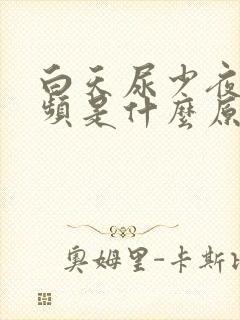 白天尿少夜
频是什麼原
奥姆里-卡斯比